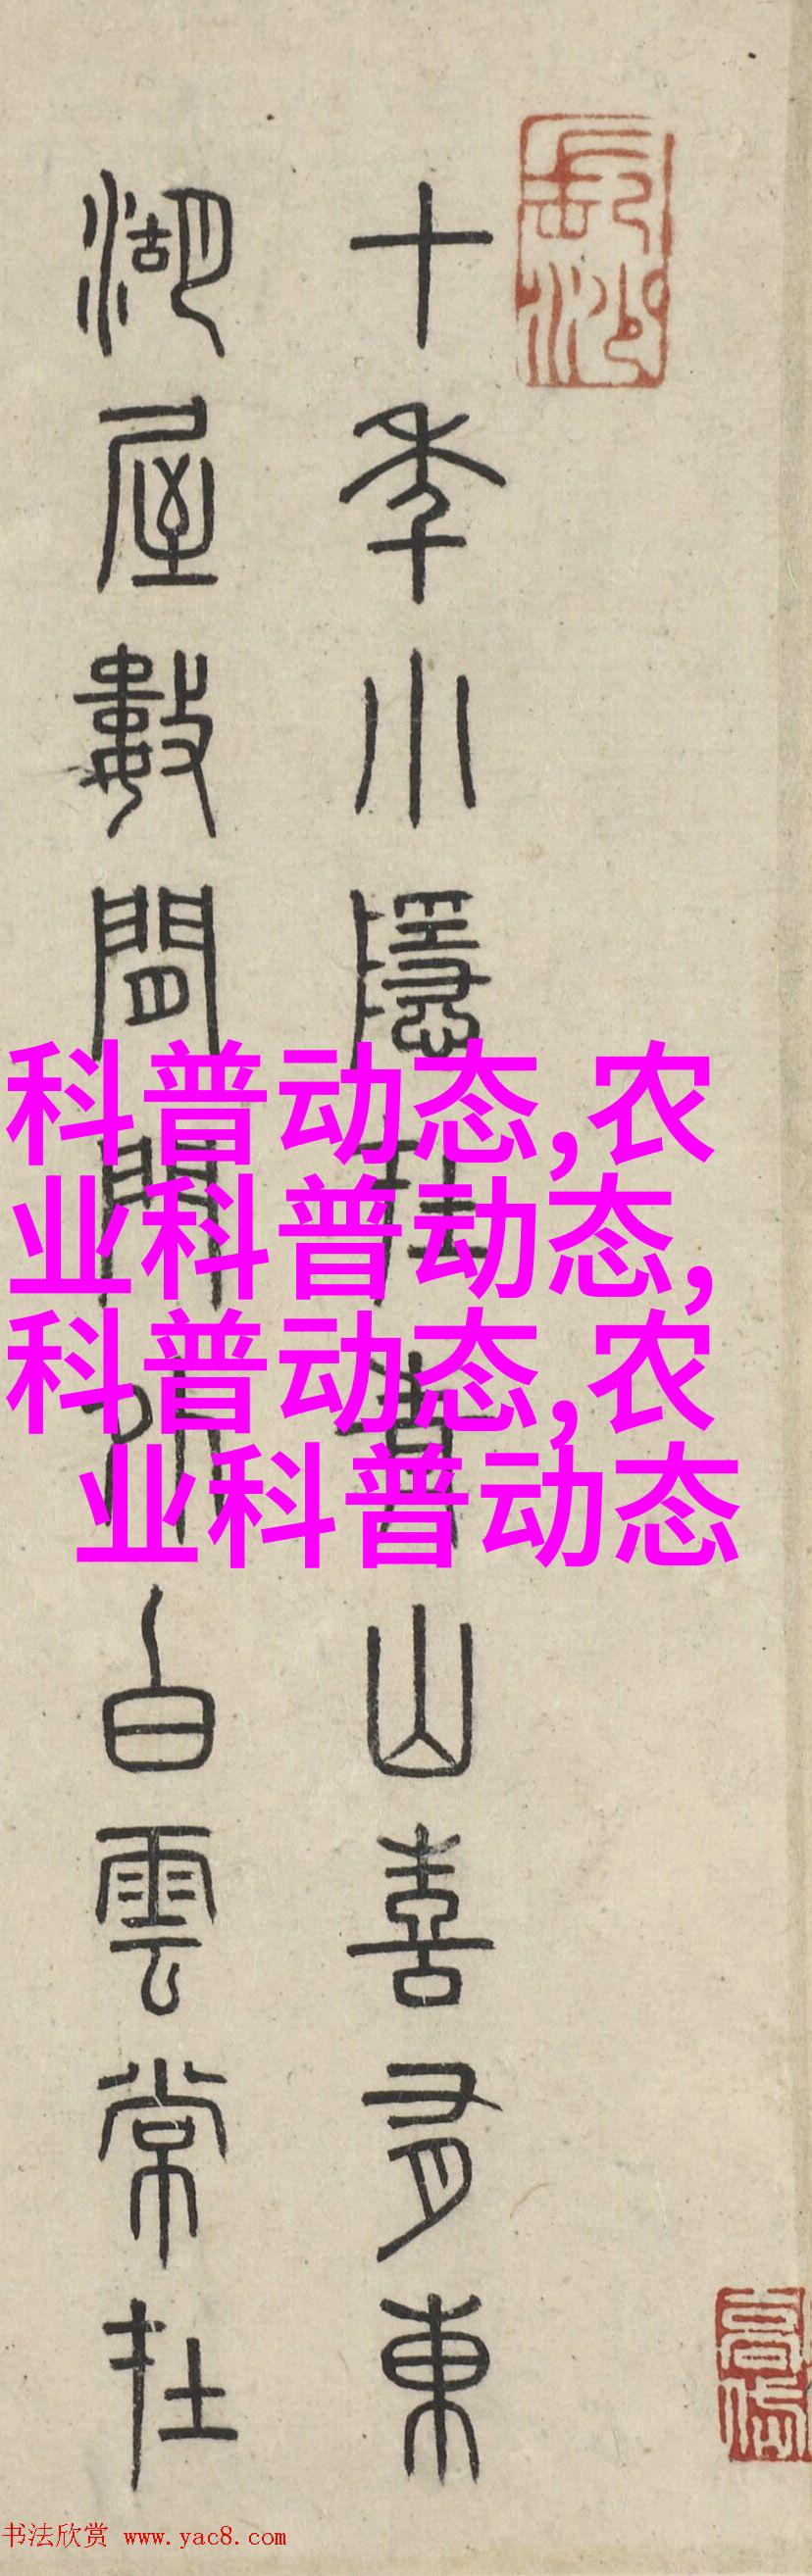 十季小隱在青山喜有東
湖屋數間門外白雲常在
科普动态,农
业科普动态,
科普动态,农
业科普动态
书法欣赏 www.yac8.com